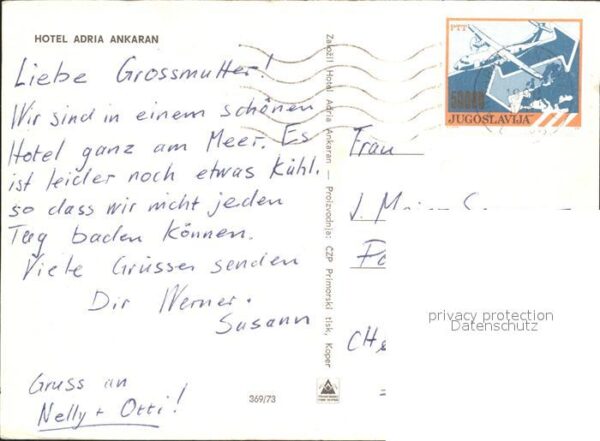 HOTEL ADRIA ANKARAN
Liebe Grossmutter!
Wir sind in einem schönen
Hotel ganz am Meer. Es
ist leider noch etwas Kühl.
so dass wir nicht jeden
Tag baden Können.
Viele Grüsse senden
Dir Werner.
Susann
Gruss an
Nelly + Otti!
369/73
Založil Hotel Adria Ankaran — Proizvodnja: ČZP Primorski tisk, Koper
PTT
JUGOSLAVIJA
Frau
J.
CH
privacy protection
Datenschutz